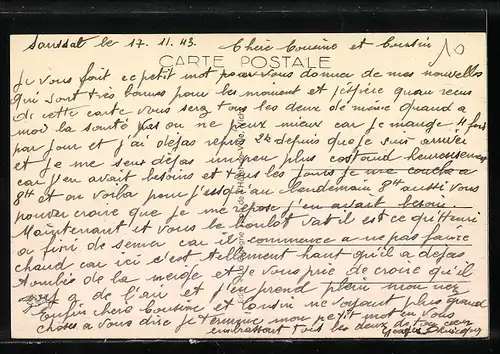 Saussat le 17. 11. 43. Chère Cousine et Cousin
CARTE POSTALE
Je vous fait ce petit mot pour vous donner de mes nouvelles
qui sont très bonnes pour les moment et j'espère quau recus
de cette carte vous serez tous les deux de même Quand a
moi la santé on ne peux mieux car je mange 4 fois
par jour et j'ai dejas repris 2k depuis que je suis arriver
et je me sens dejas un peu plus costaud heureusement
car j'en avait besoins et tous les jours je me couche a
8H et on voila pour jusqu'au lendemain 8H aussi vous
pouver croire que je me repose j'en avait besoin.
Maintenant et vous le boulot vat il est ce qu'Henri
a fini de semer car il commence a ne pas faire
chaud car ici c'est tellement haut qu'il a dejas
tombés de la nerge et je vous prie de croire qu'il
y a de l'air et j'en prend plein mon nez
Enfin chère Cousine et Cousin ne voyant plus grand
choses a vous dire je termine mon petit mot en vous
embrassant tous les deux de tout cœur